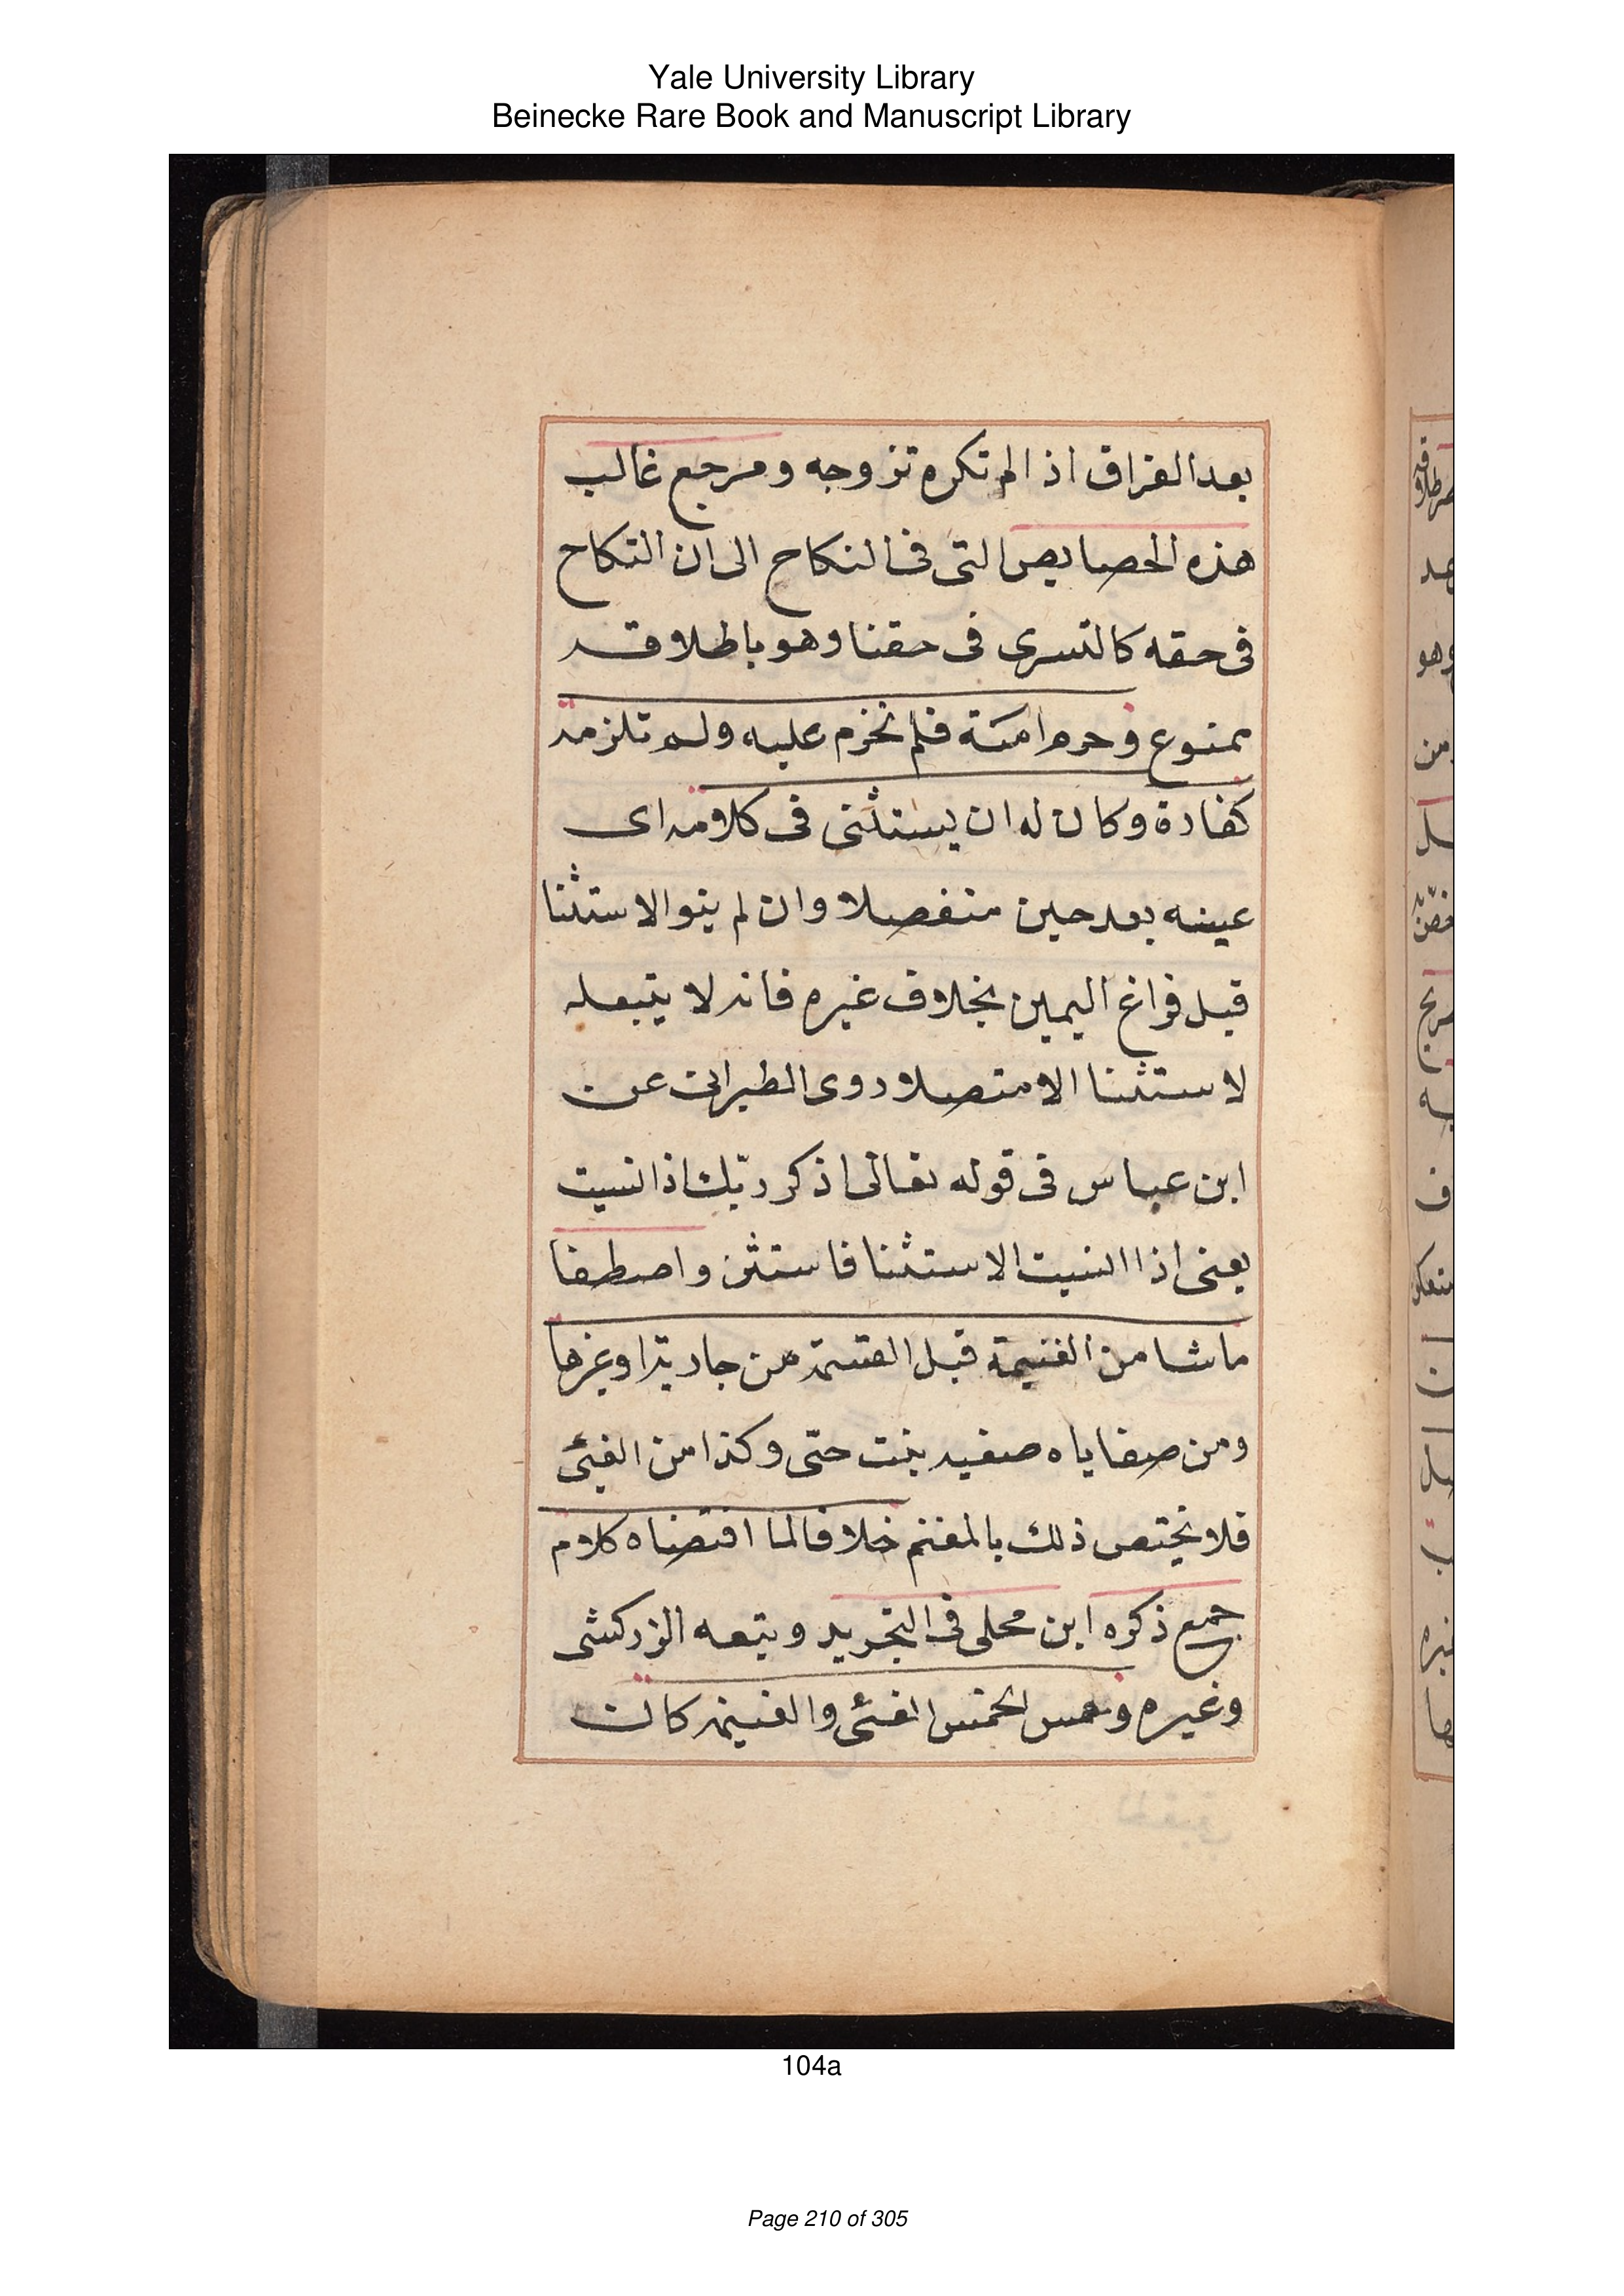 Yale University Library
Beinecke Rare Book and Manuscript Library
بعد الفراق اذا لم تكره تزوجه ومرجع غالب
هذه الخصايص التى فى النكاح الى ان النكاح
فى حقه كالتسرى فى حقنا وهو باطلاقه
ممنوع وحرم امته فلم تحرم عليه ولم تلزمه
كفارة وكان له ان يستثنى فى كلامه اى
عينه بعد حين منفصلا وان لم ينو الاستثنا
قبل فراغ اليمين بخلاف غيره فانه لا يتبعله
لاستثنا الا متصلا روى الطبرانى عن
ابن عباس فى قوله تعالى اذكر ربّك اذا نسيت
يعنى اذا انسيت الاستثنا فاستثن واصطفا
ماشا من الغنيمة قبل القسمة من جارية اوغيرها
ومن صفاياه صفيه بنت حتى وكذا من الفئ
فلا يختص ذلك بالمغنم خلافا لما اقتضاه كلام
جمع ذكره ابن محلى فى التجريد ويتبعه الزركشى
وغيره و الخمس الفئ والغنيمة كانت
104a
Page 210 of 305